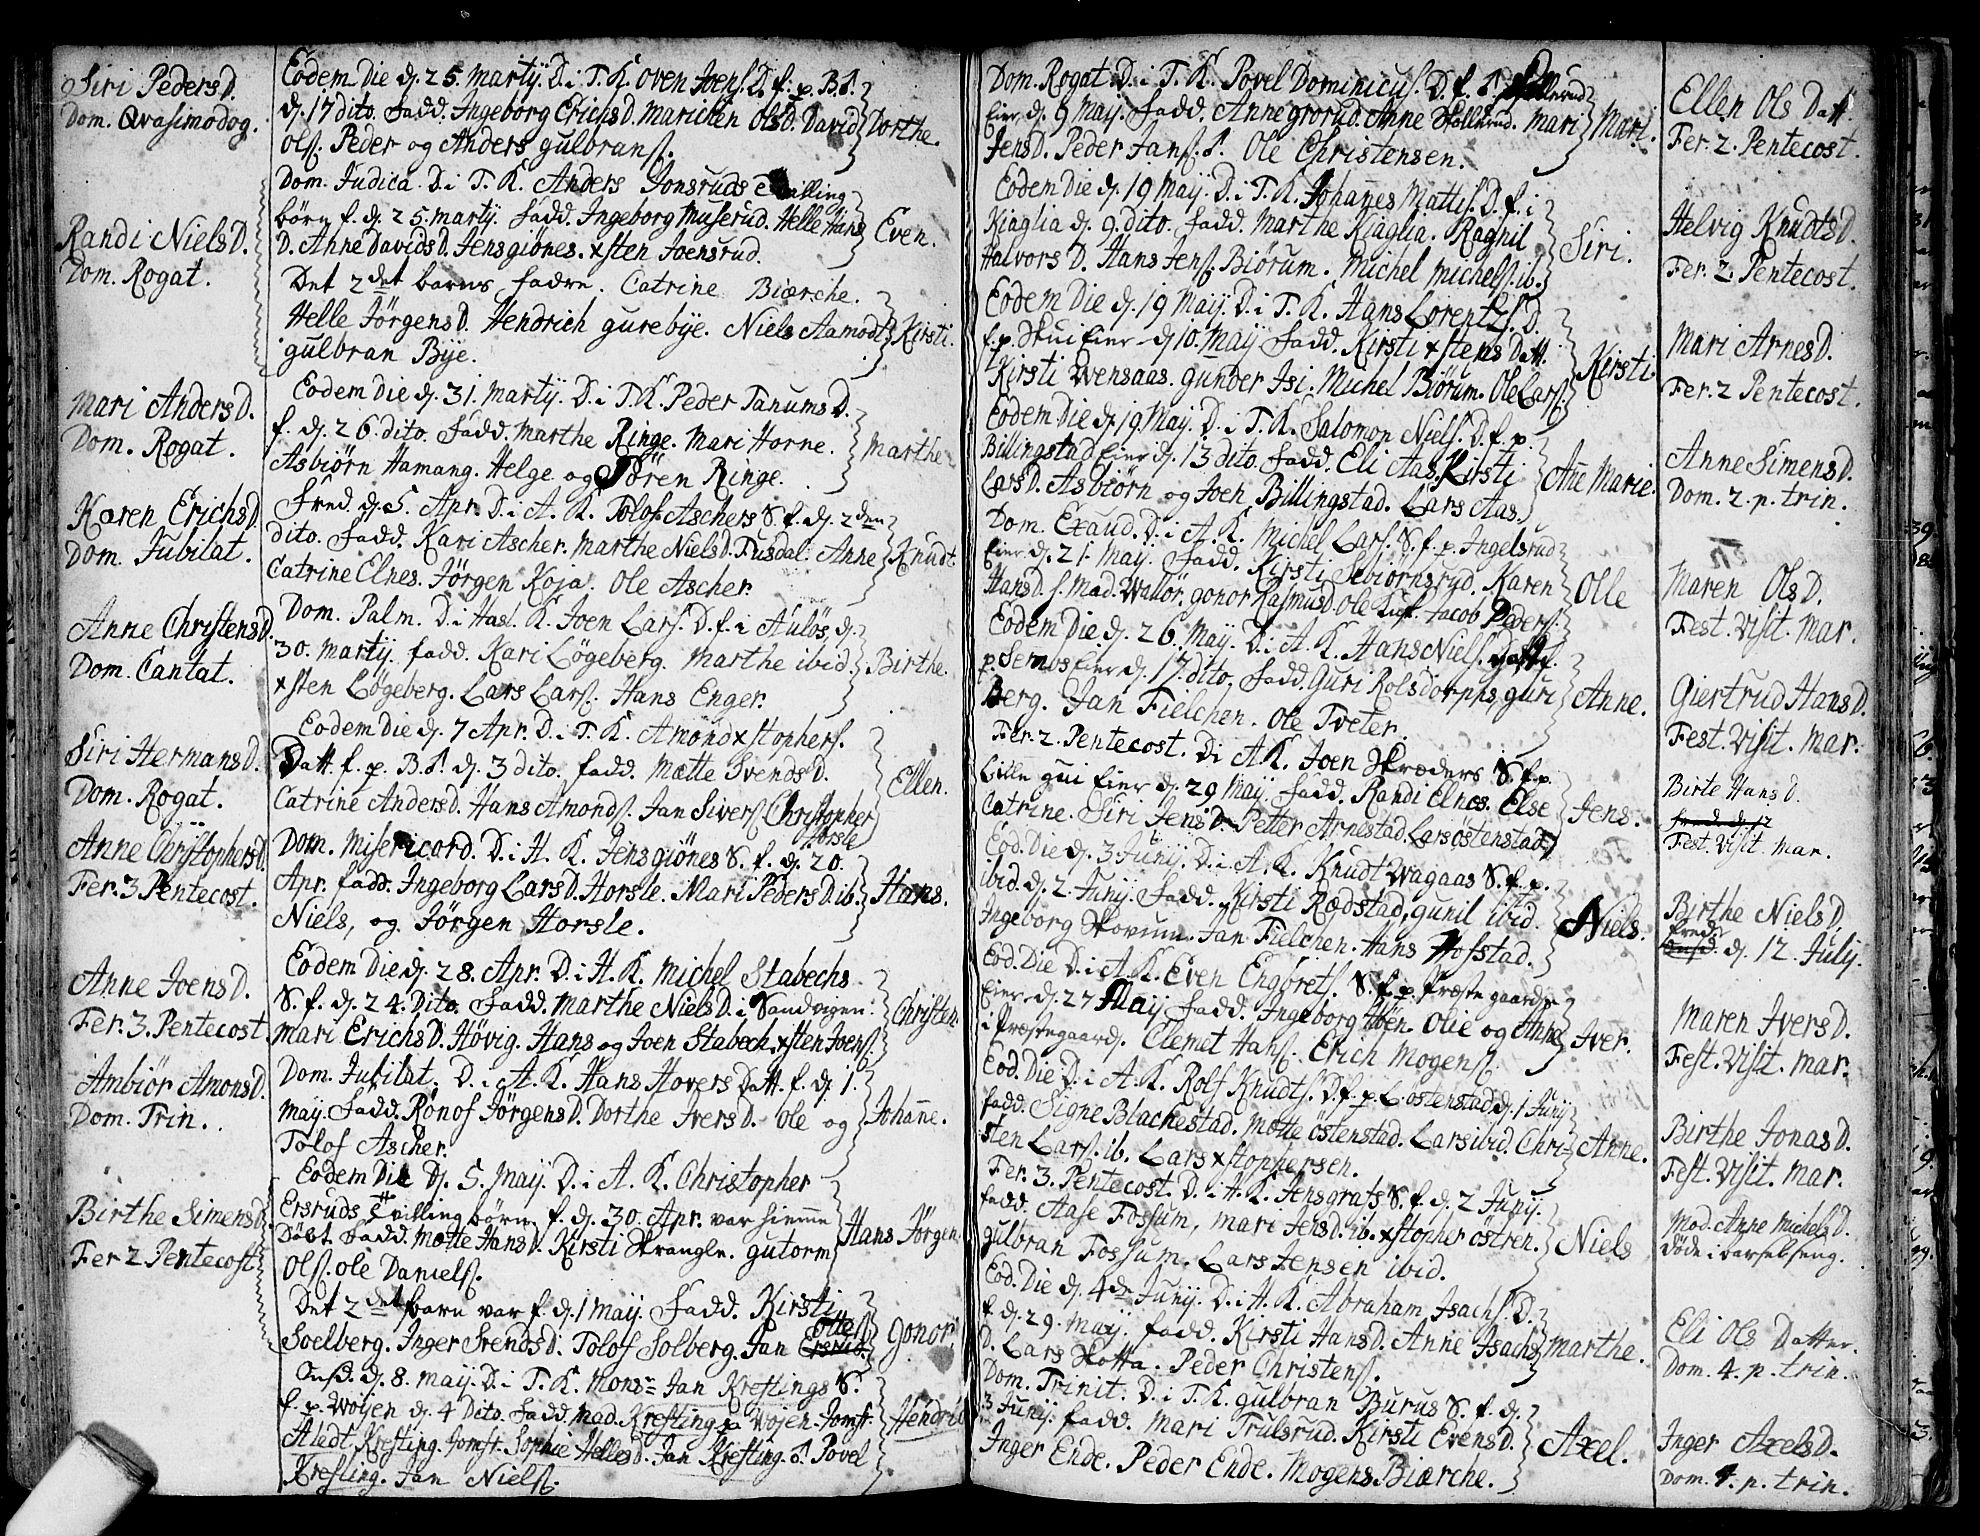 Siri Peders D.
Dom. Qvasimodog.
Randi Niels D.
Dom. Rogat.
Mari Anders D.
Dom. Rogat.
Karen Erichs D.
Dom. Jubilat.
Anne Christens D.
Dom. Cantat.
Siri Hermans D.
Dom. Rogat.
Anne Christophers D.
Fer. 3. Pentecost.
Anne Joens D.
Fer. 3. Pentecost.
Ambiör Amons D.
Dom. Trin.
Birthe Simens D.
Fer 2 Pentecost
Eodem Die d. 25. Martij. D. i T. K. Oven Joens. D. f. p. B.
d. 17 dito. Fadd. Ingeborg Erichs D. Maricken Ols D. David
Ols. Peder og Anders Gulbrans.
Dorthe.
Dom. Judica. D. i T. K. Anders Jonsruds Tvilling
börn f. d. 25. Martij. Fadd. Ingeborg Muserud. Helle Hans
D. Anne Davids D. Jens Giönes. Xsten Joensrud.
Even.
Det 2det barns fadre. Catrine Biærche.
Helle Jörgens D. Hendrich Gurebye. Niels Aamodt
Gulbran Bye.
Kirsti.
Eodem Die d. 31. Martij. D. i T. K. Peder Tanums D.
f. d. 26. dito. Fadd. Marthe Ringe. Mari Horne.
Asbiörn Hamang. Helge og Sören Ringe.
Marthe
Fred. d. 5. Apr. D. i A. K. Tolof Aschers S. f. d. 2den
dito. Fadd. Kari Ascher. Marthe Niels D. Tusdal. Anne
Catrine Elnes. Jörgen Koja. Ole Ascher.
Knudt
Dom. Palm. D. i Hasl. K. Joen Lars. D. f. i Aulös, d.
30. Martij. fadd. Kari Lögeberg. Marthe ibid.
Xsten Lögeberg. Lars Lars. Hans Enger.
Birthe.
Eodem Die d. 7 Apr. D. i T. K. Amond Xstophers.
Datt. f. p. B. d. 3 dito. fadd. Mætte Svends D.
Catrine Anders D. Hans Amonds. Jan Sivers. Christopher
Horsle
Ellen.
Dom. Misericord. D. i H. K. Jens Giönes S. f. d. 20.
Apr. fadd. Ingeborg Lars D. Horsle. Mari Peders D. ib.
Niels, og Jörgen Horsle.
Hans.
Eodem Die d. 28. Apr. D. i H. K. Michel Stabechs
S. f. d. 24. Dito. Fadd. Marthe Niels D. i Sandvigen.
Mari Erichs D. Hövig. Hans og Joen Stabech. Xsten Joens.
Christen.
Dom. Jubilat. D. i A. K. Hans Hovers Datt. f. d. 1.
Maij. Fadd. Rönof Jörgens D. Dorthe Ivers D. Ole og
Tolof Ascher.
Johanne.
Eodem Die d. 5. Maij. D. i A. K. Christopher
Ersruds Tvilling börn f. d. 30. Apr. var hiemme
Döbt. Fadd. Mötte Hans D. Kirsti Skrangle. Gutorm
Ols. Ole Daniels.
Hans Jörgen.
Det 2det barn var f. d. 1 Maij. Fadd. Kirsti
Soelberg. Inger Svends D. Tolof Solberg. Jan Ottes.
Gonor
Onsd. d. 8. Maij. D. i T. K. Monsr. Jan Kreftings S.
f. p. Wojen d. 4 Dito. Fadd. Mad. Krefting pa Wojen. Jomfr.
Aladt, Krefting. Jomfr. Sophie Helles D. Jan Krefting. Povel
Krefting. Jan Niels.
Hendric
Dom. Rogat. D. i T. K. Povel Dominicus. D. f. Skollerud
Eier d. 9 Maij. Fadd. Anne Grorud. Anne Skollerud. Mari
Jens D. Peder Jans. Ole Christensen.
Mari.
Eodem Die d. 19 Maij. D. i T. K. Johannes Mattis. D. f. i
Kiaglia d. 9. dito. Fadd. Marthe Kiaglia. Ragnil
Halvors D. Hans Jens. Biörum. Michel Michels. ib.
Siri.
Eodem Die d. 19 Maij. D. i T. K. Hans Lorentzs. D.
f. p. Skui Eier d. 10. Maij Fadd. Kirsti Xstens Datt.
Kirsti Wensaas. Gunder Isi. Michel Biörum. Ole Lars.
Kirsti
Eodem Die d. 19 Maij. D. i T. K. Salomon Niels. D. f. p.
Billingstad Eier d. 13 dito. Fadd. Eli Aas. Kirsti
Lars D. Asbiörn og Joen Billingstad. Lars Aas.
Añe Marie.
Dom. Exaud. D. i A. K. Michel Lars. S. f. p. Ingelsrud
Eier d. 21. Maij. Fadd. Kirsti Sebiörnsryd. Karen
Hans D. Mad. Wallör. Gonor Rasmus D. Ole Jacob Peders.
Olle
Eodem Die d. 26. Maij. D. i A. K. Hans Niels. Datt f.
p. Sembs Eier d. 17. dito. Fadd. Guri Rolsdorphs. Guri
Berg. Jan Fielchen. Ole Tveter.
Anne.
Fer. 2. Pentecost. D. i A. K. Joen Skræders S. f. p.
Lille Gui Eier d. 29 Maij. Fadd. Randi Elnes. Else
Catrine. Siri Jens D. Petter Arnestad. Lars Östenstad.
Jens.
Eod. Die d. 3 Junij. D. i A. K. Knudt Wagaas S. f. p.
ibid. d. 2 Junij. Fadd. Kirsti Rødstad, Gunil ibid.
Ingeborg Skovum. Jan Fielchen. Hans Hofstad.
Niels.
Eod. Die D. i A. K. Even Engbrets. S. f. p. Præste gaards
Eier d. 27 Maij Fadd. Ingeborg Höen Olie og Anne
i Præstegaard. Clemet Hans. Erich Mogens.
Iver.
Eod. Die D. i A. K. Rolf Knudts. D. f. p. L. Östenstad d. 1 Junij
fadd. Signe Blachestad. Mötte Östenstad. Lars ibid. Chri-
sten Lars. ib. Lars Xstophersen.
Anne.
Fer. 3. Pentecost. D. i H. K. Jens Grats S. f. d. 2 Junij.
fadd. Aase Fossum. Mari Jens D. ib. Xstopher Östren.
Gulbran Fossum. Lars Jensen ibid.
Niels
Eod. Die d. 4de Junij. D. i H. K. Abraham Isachs. D.
f. d. 29. Maij. fadd. Kirsti Hans D. Anne Isachs
D. Lars Skotta. Peder Christens.
Marthe.
Dom. Trinit. D. i T. K. Gulbran Burus S. f. d.
3 Junij. fadd. Mari Trulsrud. Kirsti Evens D.
Inger Ende. Peder Ende. Mogens Biærche.
Axel.
Ellen Ols Datt.
Fer. 2. Pentecost.
Helvig Knudts D.
Fer. 2. Pentecost.
Mari Arnes D.
Fer. 2 Pentecost.
Anne Simens D.
Dom. 2. p. trin.
Maren Ols D.
Fest. Visit. Mar.
Giertrud Hans D.
Fest. Visit. Mar.
Birte Hans D.
Fest. Visit Mar.
Birthe Niels D.
Fred. d. 12. Julij.
Maren Ivers D.
Fest. Visit. Mar.
Birthe Jonas D.
Fest. Visit. Mar.
Mad. Anne Michels D.
döde i barselseng.
Eli Ols Datter.
Dom. 4. p. trin.
Inger Axels D.
Dom. 4. p. trin.